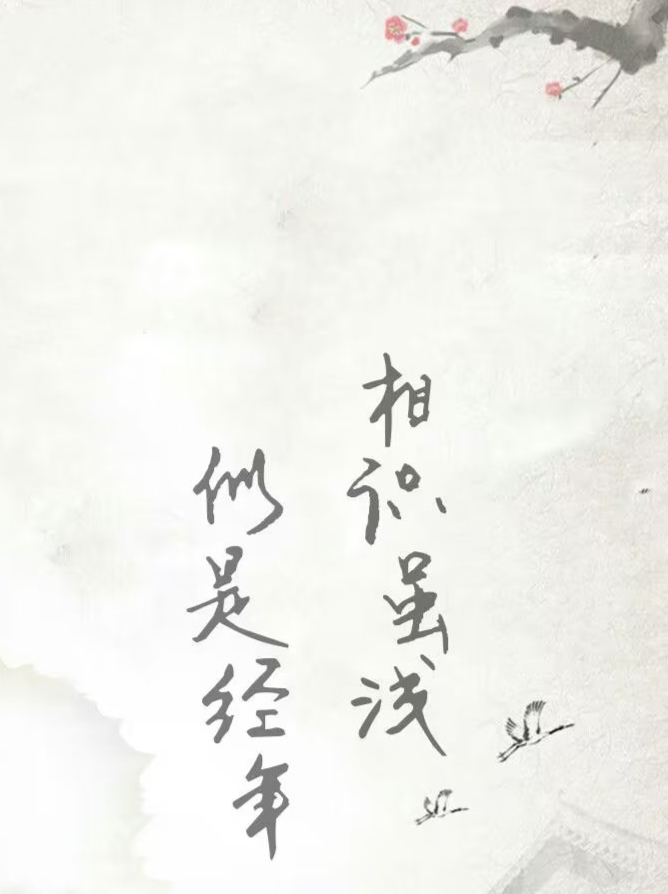 相识虽浅
似是经年